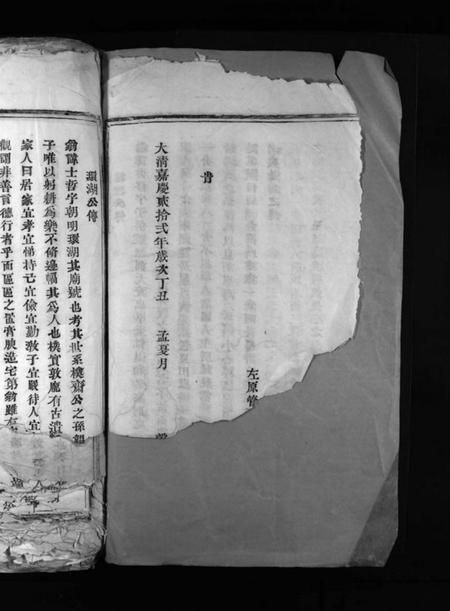 之
左原管
肯
大清嘉慶貳拾弍年歲次丁丑 孟夏月
環湖公傳
翁諱士哲字朝明環湖其廟號也考其世系樸齋公之孫
子唯以躬耕爲樂不脩邊幅其爲人也樸實敦龐有古
家人曰居家宜孝宜悌持己宜儉宜勤教子宜嚴待人宜
觀謂非善言德行者乎而區區之置膏腴造宅第翁雖